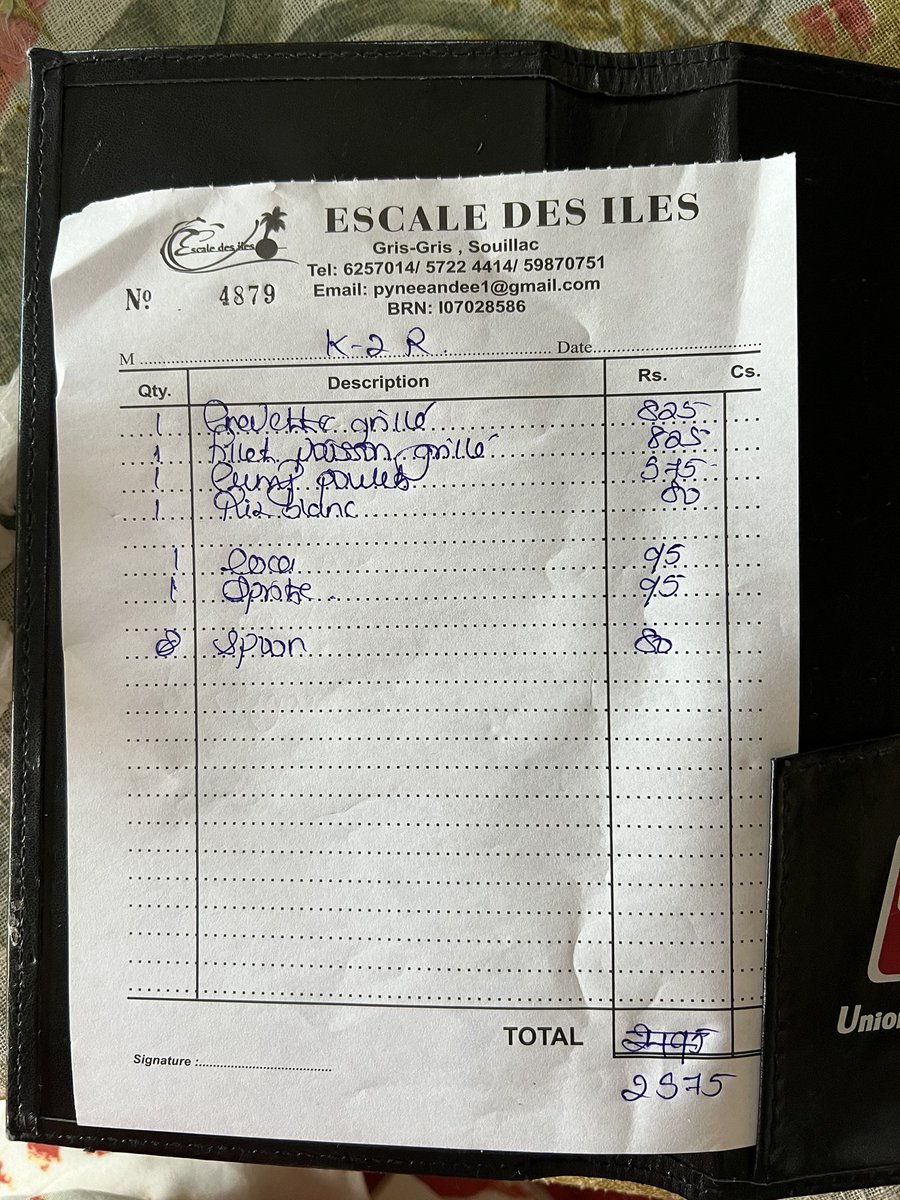 Escale des iles
ESCALE DES ILES
Gris-Gris , Souillac
Tel: 6257014/ 5722 4414/ 59870751
Email: pyneeandee1@gmail.com
BRN: I07028586
Nº 4879
M K-2 R Date
Qty. Description Rs. Cs.
1 Crevette grillé 825
1 Filet poisson grillé 825
1 Curry poulet 375
1 Riz blanc 80
1 Coca 95
1 Sprite 95
8 Spoon 80
TOTAL
2375
Signature :
Union